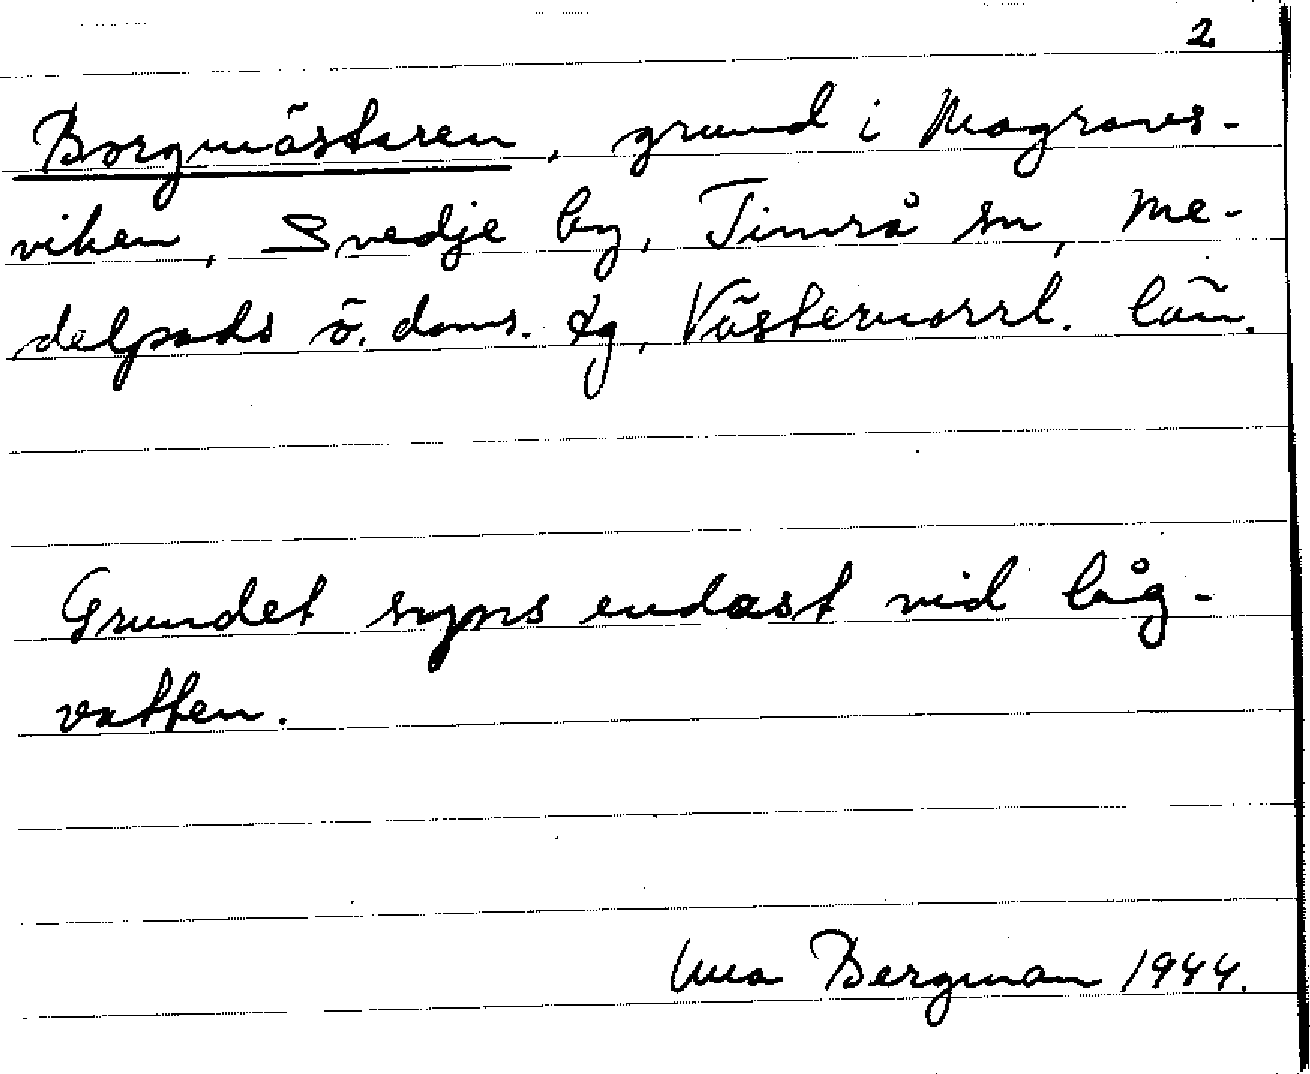 2
Borgmästaren, grund i Magravs-
viken, Svedje by, Timrå sn, Me-
delpads ö. doms. tg, Västernorrl. län.
Grundet syns endast vid låg-
vatten.
Una Bergman 1944.